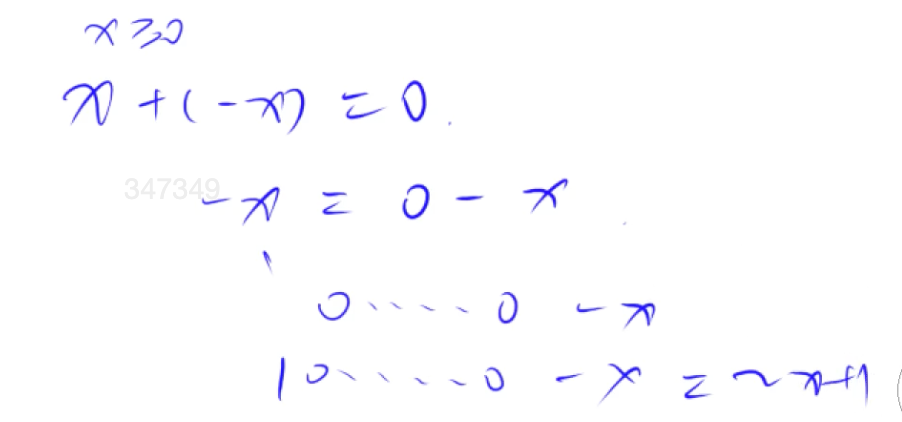 x ⩾ 0
x + (-x) = 0.
347349
-x = 0 - x
0 ..... 0 - x
10 ..... 0 - x = ~x+1